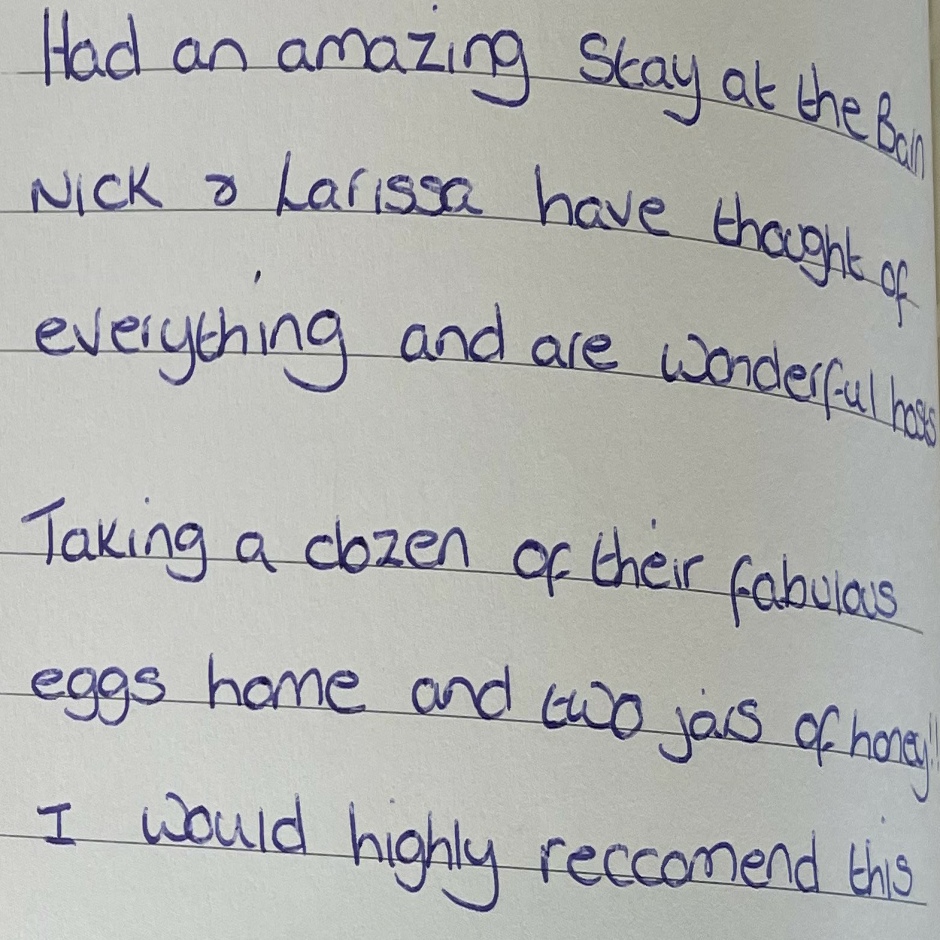 Had an amazing Stay at the Barn
Nick & Larissa have thought of
everything and are wonderful hosts
Taking a dozen of their fabulous
eggs home and two jars of honey!!
I would highly reccomend this